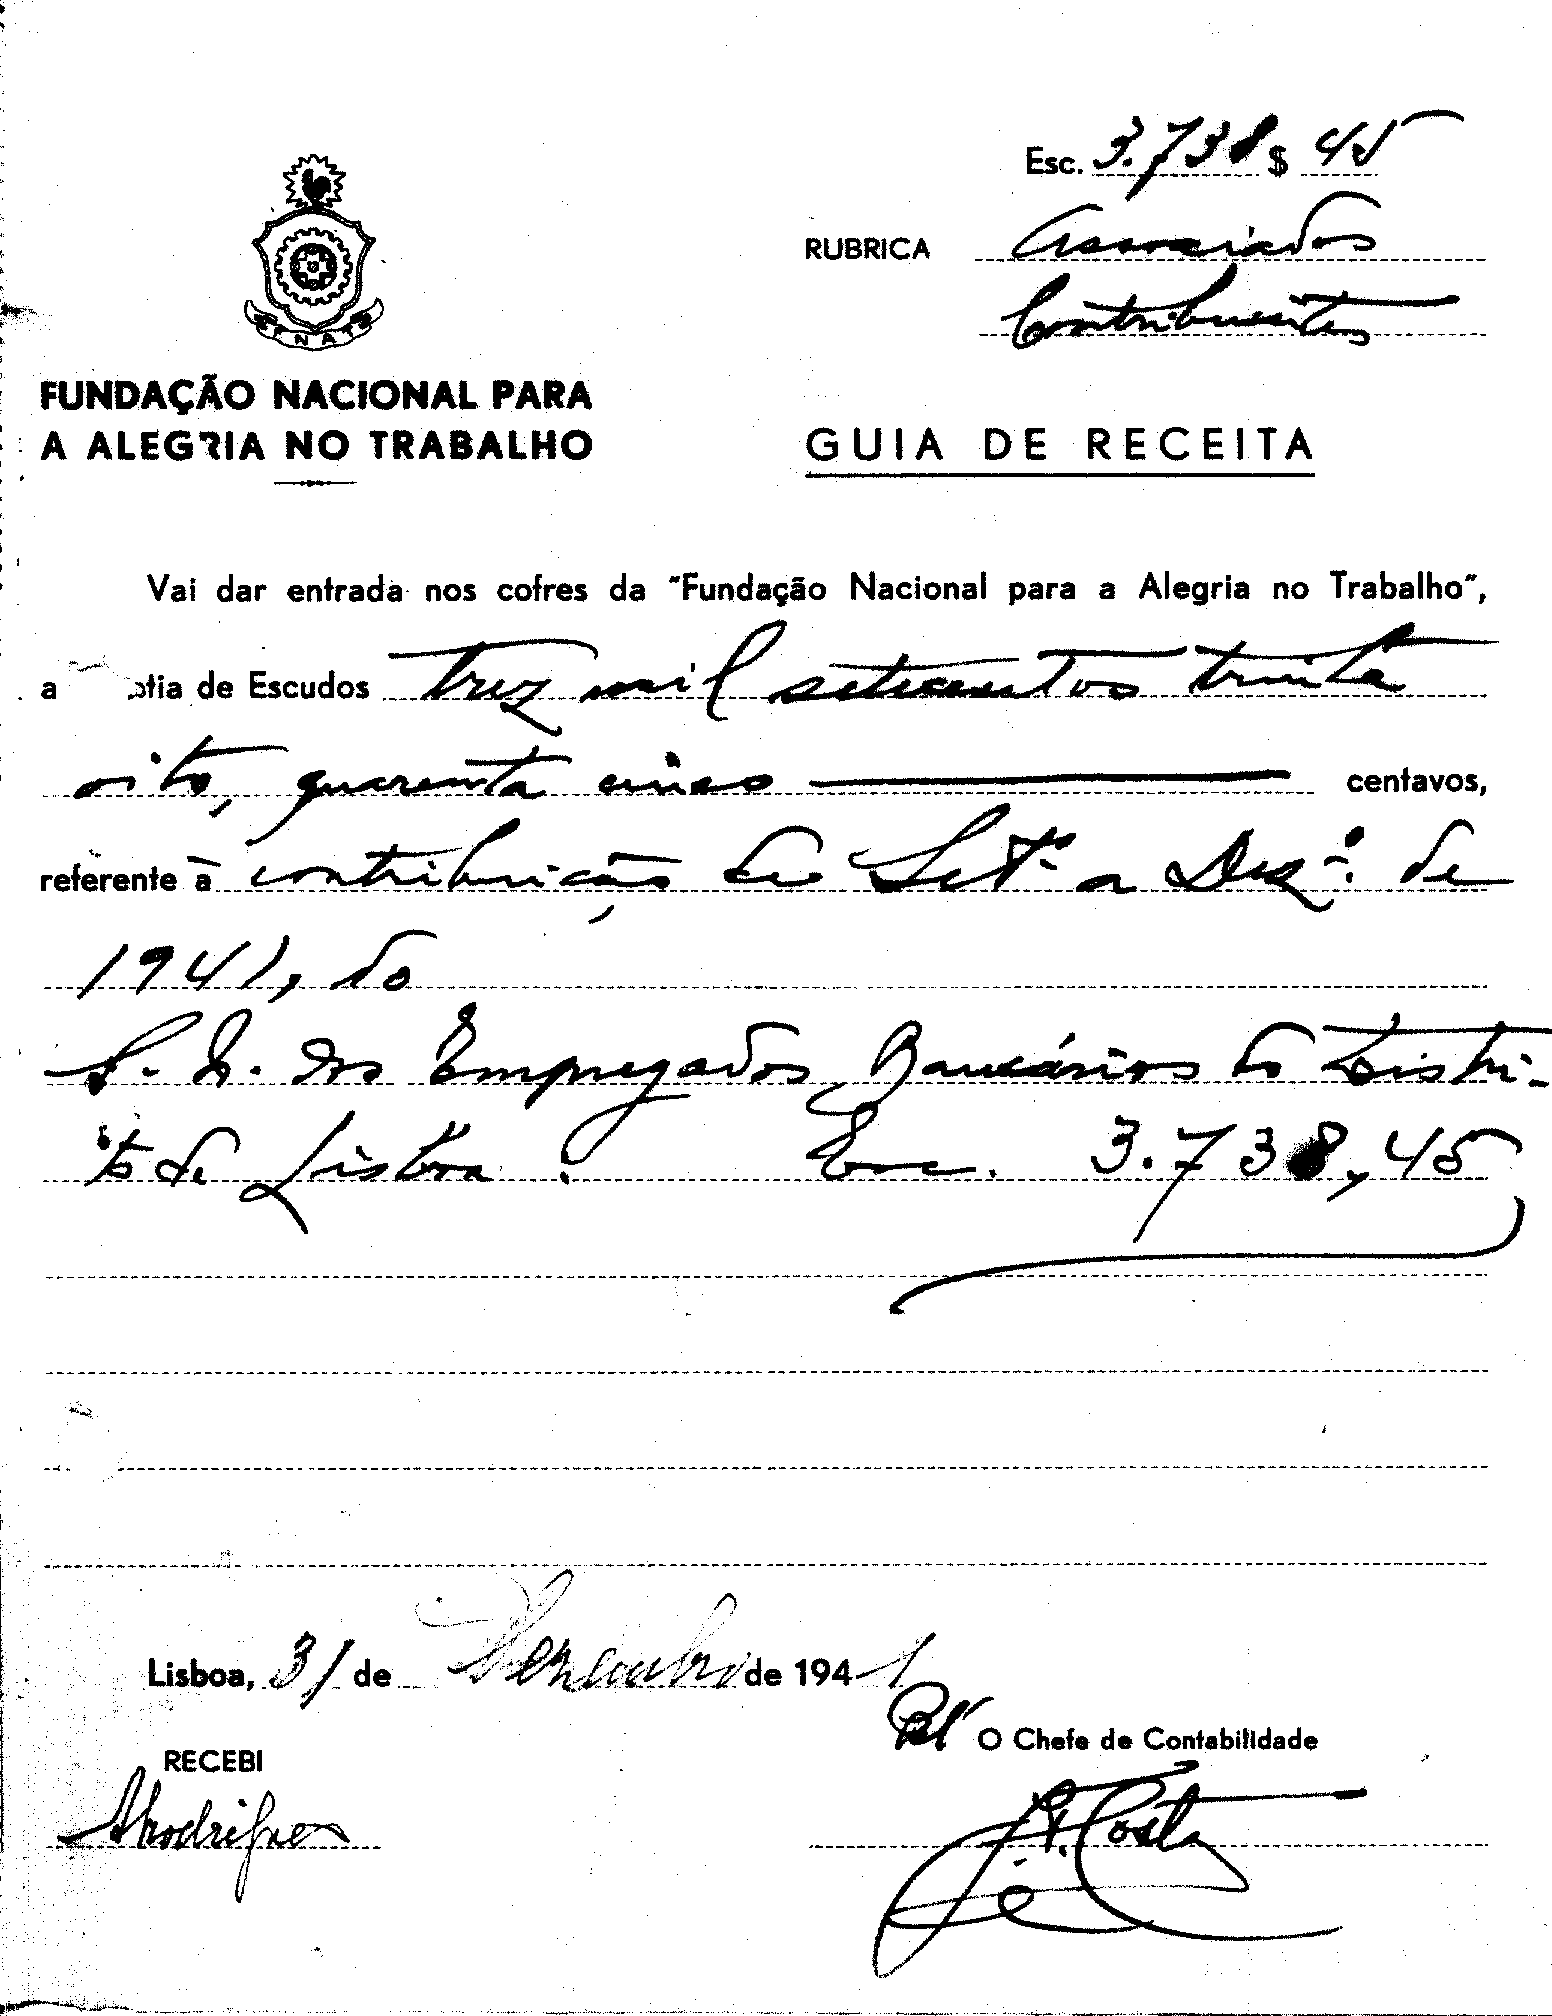 Esc. 3.738 $ 45
RUBRICA Associados
Contribuintes
F N A T
FUNDAÇÃO NACIONAL PARA
A ALEGRIA NO TRABALHO
GUIA DE RECEITA
Vai dar entrada nos cofres da "Fundação Nacional para a Alegria no Trabalho",
a tia de Escudos trez mil setecentos trinta
oito, quarenta cinco centavos,
referente à contribuição de Setº. a Dezº. de
1941, do
S. N. dos Empregados Bancários do Distri-
to de Lisboa: Esc. 3.738,45
Lisboa, 31 de Dezembro de 1941
Pel' O Chefe de Contabilidade
RECEBI
ARodrigues
J. A. Costa